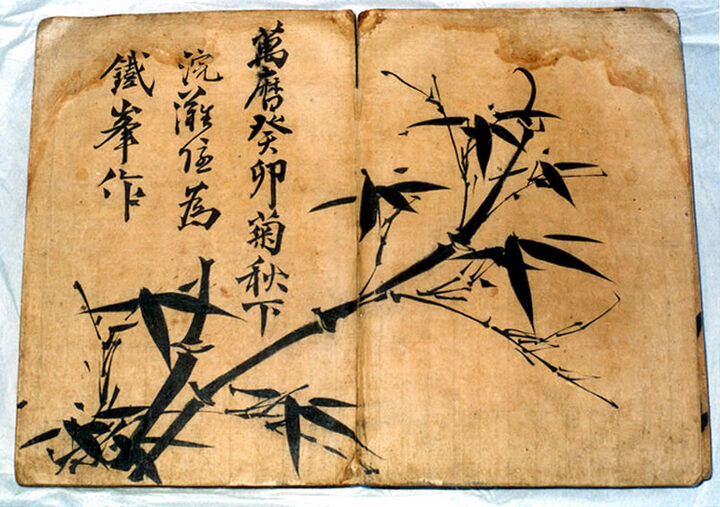 萬曆癸卯菊秋下
浣灘隱為
鐵峯作